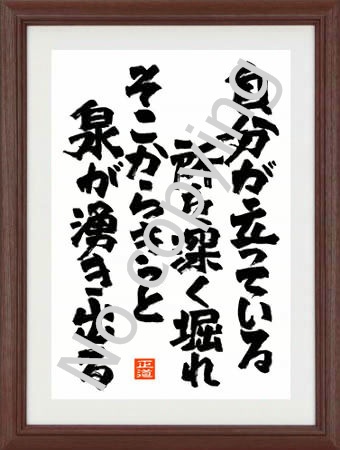 自分が立っている
所を深く掘れ
そこからきっと
泉が湧き出る
正道
No copying